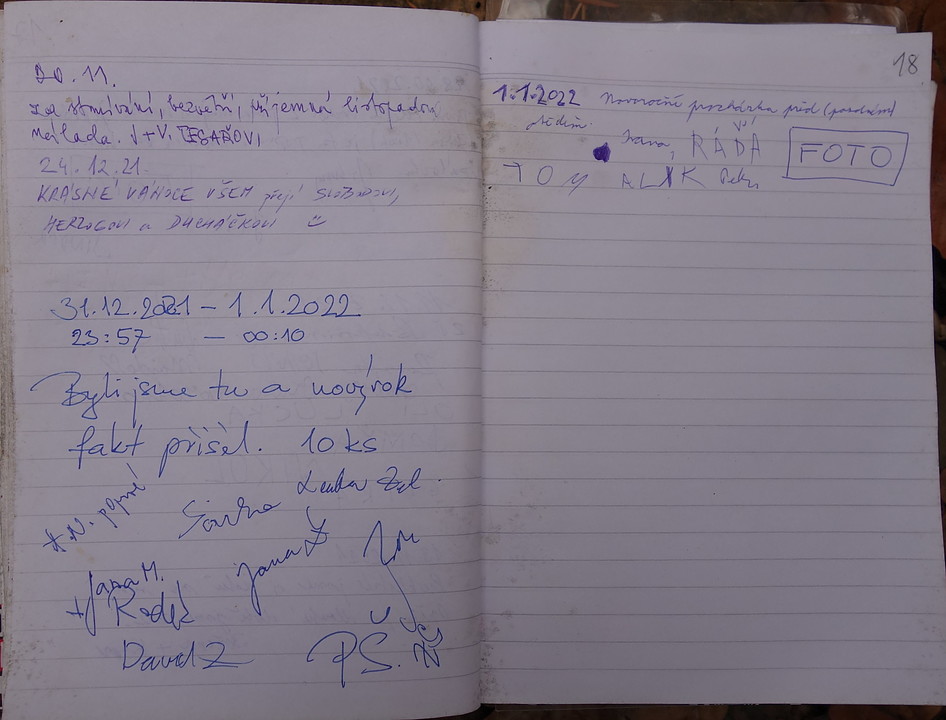 20.11.
za stmívání, bezvětří, příjemná listopadová
nálada. J+V. TESAŘOVI
24.12.21.
KRÁSNÉ VÁNOCE VŠEM přejí SLOBODOVI,
HERZOGOVI a DUCHÁČKOVI
31.12.2021 – 1.1.2022
23:57 – 00:10
Byli jsme tu a nový rok
fakt přišel. 10 ks
Šárka
Jana Z
Jana M.
+ Radek
David Z
PŠ.
18
1.1.2022 Novoroční procházka před (parádním)
obědem.
Ivana, RÁĎA
FOTO
TOM ALIK Petr